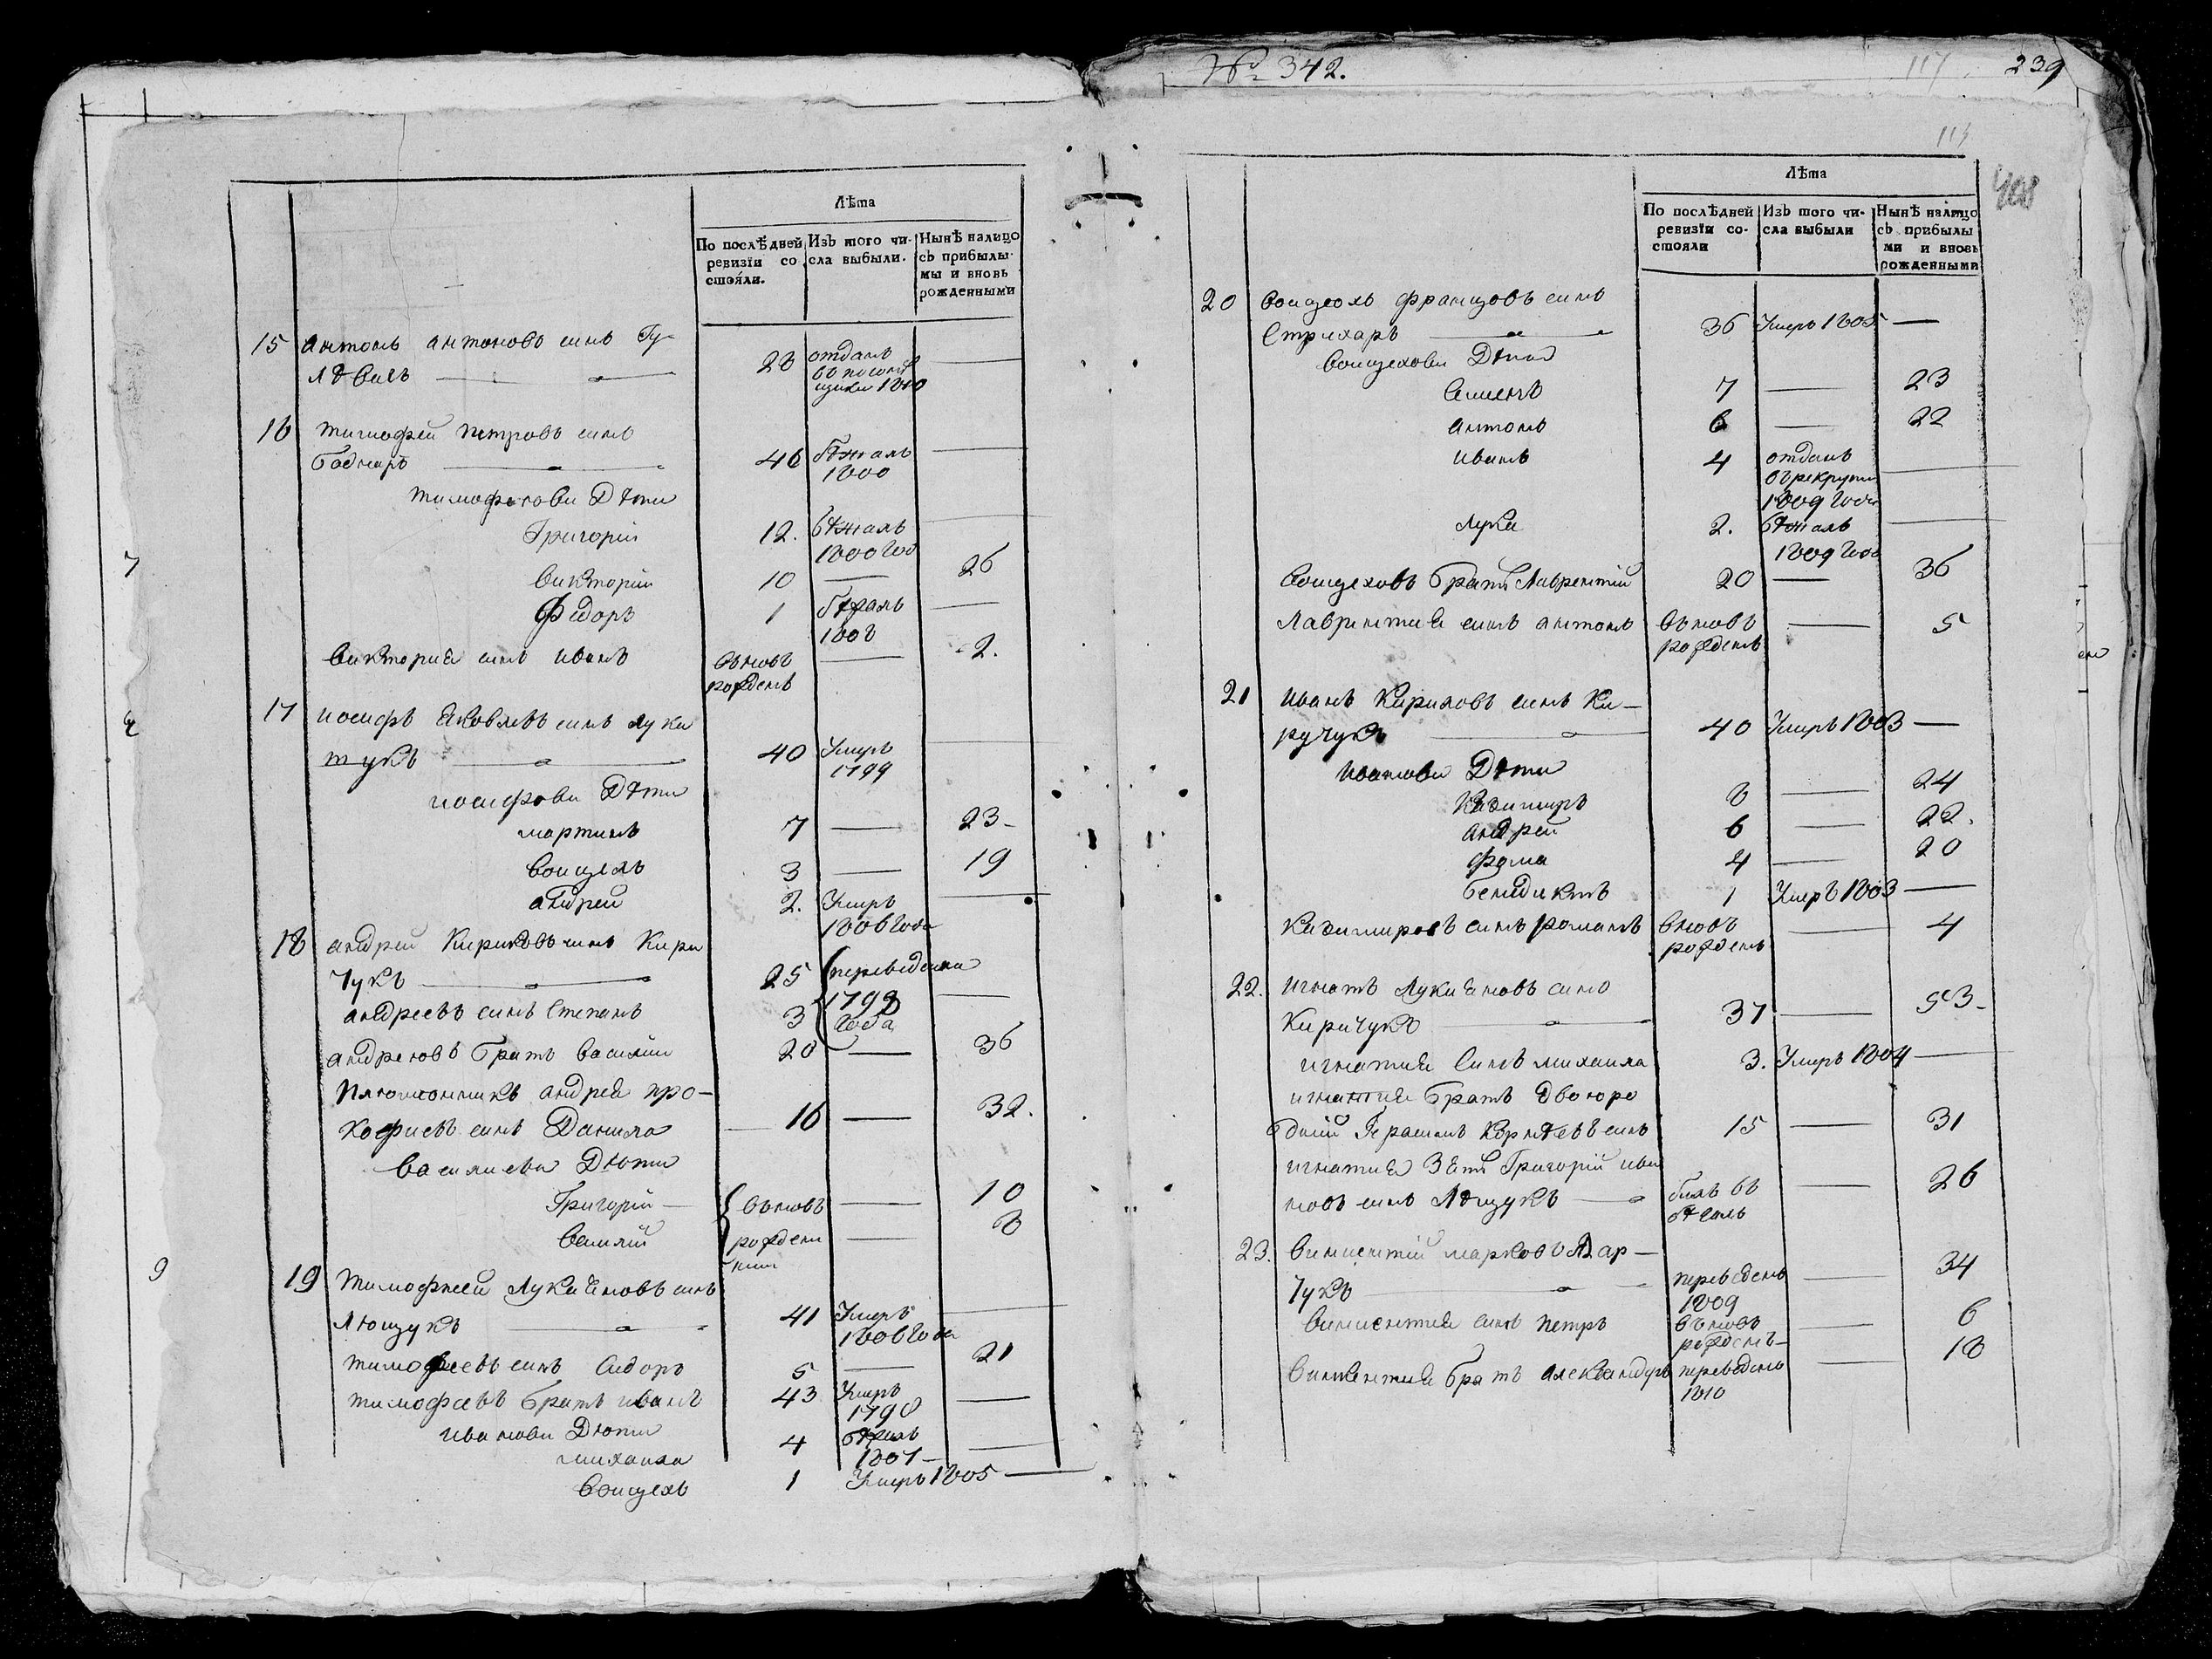 Лѣта
По послѣдней ревизіи со стояли.
Изъ того чи- сла выбыли.
Нынѣ налицо съ прибылы- мы и вновь рожденными
15 антонъ антоновъ синъ Гу-
28 отданъ
1810
16 тимофей петровъ синъ
боднаръ 46 бѣжалъ
1800
тимофеови Дѣти
Григорій 12. бѣжалъ
1800 год
викторій 10 — 26
Федоръ 1 бѣжалъ
1808
викторія синъ иванъ вновъ — 2.
рожденъ
17 иосифъ яковлевъ синъ луки
тукъ 40 Умеръ
1799
иосифови Дѣти
мартинъ 7 — 23-
воицехъ 3 — 19
андрей 2. Умеръ
1806 года
18 андрей Кириковъ синъ Кири
чукъ 25 переведени
1798
андреевъ синъ степанъ 3 года
андреювъ братъ василии 20 — 36
племенникъ андрея про-
кофиевъ синъ Данило 16 — 32.
василиеви Дюти
Григорій — вновъ — 10
василій рождени — 8
19 тимофией Лукиеновъ синъ
Лющукъ 41 Умеръ
1806 года
тимофеевъ синъ Сидоръ 5 — 21
тимофеевъ братъ иванъ 43 Умеръ
1798
иванови Дюти
михаила 4 бѣжалъ
1807 —
воицехъ 1 Умеръ 1805 —
№ 342.
117 239
113
408
Лѣта
По послѣдней ревизіи со- стояли
Изъ того чи- сла выбыли
Нынѣ налицо съ прибылы ми и вновь рожденными
20 воицехъ францовъ синъ
Стрихаръ 36 Умеръ 1805 —
воицехови Дѣти
Семенъ 7 — 23
антонъ 6 — 22
иванъ 4 отданъ
въ рекрути
1809 года
лука 2. бѣжалъ
1809 года
воицеховъ братъ Лаврентій 20 — 36
Лаврентия синъ антонъ вновъ — 5
рожденъ
21 иванъ Кириловъ синъ Ки-
ручукъ 40 Умеръ 1803 —
иванови Дѣти
Казимиръ 8 — 24
андрей 6 — 22.
фома 4 — 20
бенедиктъ 1 Умеръ 1803 —
Казимировъ синъ романъ вновъ — 4
рожденъ
22. игнатъ Лукиеновъ синъ
Киричукъ 37 — 53-
игнатия Синъ михаила 3. Умеръ 1804 —
игнатия братъ двоюро
дній Герасимъ Корнѣевъ синъ 15 — 31
игнатия Зять Григорій ива
новъ синъ Лѣщукъ — билъ въ — 26
бѣгахъ
23. винцентій марковъ Мар-
чукъ переведенъ — 34
1809
винцентия синъ петръ вновъ — 6
рожденъ-
винцентия братъ александръ переведенъ — 18
1810